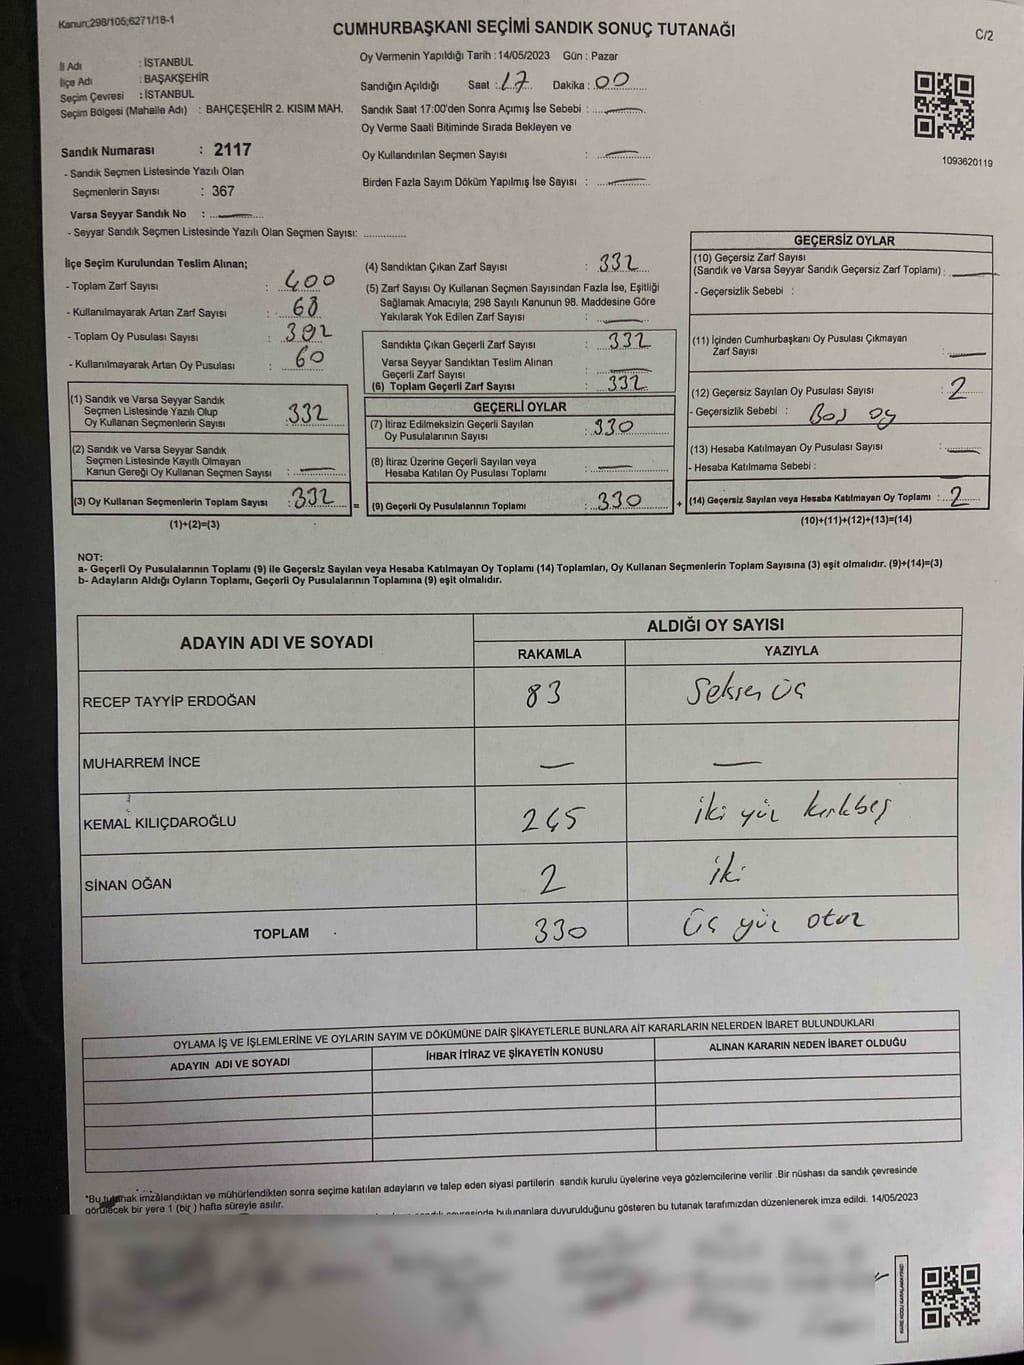 Kanun;298/105;6271/18-1
CUMHURBAŞKANI SEÇİMİ SANDIK SONUÇ TUTANAĞI
C/2
İl Adı : İSTANBUL
İlçe Adı : BAŞAKŞEHİR
Seçim Çevresi : İSTANBUL
Seçim Bölgesi (Mahalle Adı) : BAHÇEŞEHİR 2. KISIM MAH.
Sandık Numarası : 2117
- Sandık Seçmen Listesinde Yazılı Olan
Seçmenlerin Sayısı : 367
Varsa Seyyar Sandık No :
- Seyyar Sandık Seçmen Listesinde Yazılı Olan Seçmen Sayısı:
Oy Vermenin Yapıldığı Tarih : 14/05/2023 Gün : Pazar
Sandığın Açıldığı Saat : 17 Dakika : 00
Sandık Saat 17:00'den Sonra Açımış İse Sebebi :
Oy Verme Saati Bitiminde Sırada Bekleyen ve
Oy Kullandırılan Seçmen Sayısı :
Birden Fazla Sayım Döküm Yapılmış İse Sayısı :
1093620119
İlçe Seçim Kurulundan Teslim Alınan;
- Toplam Zarf Sayısı : 400
- Kullanılmayarak Artan Zarf Sayısı : 68
- Toplam Oy Pusulası Sayısı : 392
- Kullanılmayarak Artan Oy Pusulası : 60
(1) Sandık ve Varsa Seyyar Sandık
Seçmen Listesinde Yazılı Olup
Oy Kullanan Seçmenlerin Sayısı : 332
(2) Sandık ve Varsa Seyyar Sandık
Seçmen Listesinde Kayıtlı Olmayan
Kanun Gereği Oy Kullanan Seçmen Sayısı :
(3) Oy Kullanan Seçmenlerin Toplam Sayısı : 332
(1)+(2)=(3)
(4) Sandıktan Çıkan Zarf Sayısı : 332
(5) Zarf Sayısı Oy Kullanan Seçmen Sayısından Fazla İse, Eşitliği
Sağlamak Amacıyla; 298 Sayılı Kanunun 98. Maddesine Göre
Yakılarak Yok Edilen Zarf Sayısı :
Sandıkta Çıkan Geçerli Zarf Sayısı : 332
Varsa Seyyar Sandıktan Teslim Alınan
Geçerli Zarf Sayısı :
(6) Toplam Geçerli Zarf Sayısı : 332
GEÇERLİ OYLAR
(7) İtiraz Edilmeksizin Geçerli Sayılan
Oy Pusulalarının Sayısı : 330
(8) İtiraz Üzerine Geçerli Sayılan veya
Hesaba Katılan Oy Pusulası Toplamı :
= (9) Geçerli Oy Pusulalarının Toplamı : 330 +
GEÇERSİZ OYLAR
(10) Geçersiz Zarf Sayısı
(Sandık ve Varsa Seyyar Sandık Geçersiz Zarf Toplamı) :
- Geçersizlik Sebebi :
(11) İçinden Cumhurbaşkanı Oy Pusulası Çıkmayan
Zarf Sayısı :
(12) Geçersiz Sayılan Oy Pusulası Sayısı : 2
- Geçersizlik Sebebi : Boş oy
(13) Hesaba Katılmayan Oy Pusulası Sayısı :
- Hesaba Katılmama Sebebi :
(14) Geçersiz Sayılan veya Hesaba Katılmayan Oy Toplamı : 2
(10)+(11)+(12)+(13)=(14)
NOT:
a- Geçerli Oy Pusulalarının Toplamı (9) ile Geçersiz Sayılan veya Hesaba Katılmayan Oy Toplamı (14) Toplamları, Oy Kullanan Seçmenlerin Toplam Sayısına (3) eşit olmalıdır. (9)+(14)=(3)
b- Adayların Aldığı Oyların Toplamı, Geçerli Oy Pusulalarının Toplamına (9) eşit olmalıdır.
ADAYIN ADI VE SOYADI
ALDIĞI OY SAYISI
RAKAMLA YAZIYLA
RECEP TAYYİP ERDOĞAN 83 Seksen üç
MUHARREM İNCE — —
KEMAL KILIÇDAROĞLU 245 iki yüz kırkbeş
SİNAN OĞAN 2 iki
TOPLAM 330 üç yüz otuz
OYLAMA İŞ VE İŞLEMLERİNE VE OYLARIN SAYIM VE DÖKÜMÜNE DAİR ŞİKAYETLERLE BUNLARA AİT KARARLARIN NELERDEN İBARET BULUNDUKLARI
ADAYIN ADI VE SOYADI İHBAR İTİRAZ VE ŞİKAYETİN KONUSU ALINAN KARARIN NEDEN İBARET OLDUĞU
*Bu tutanak imzalandıktan ve mühürlendikten sonra seçime katılan adayların ve talep eden siyasi partilerin sandık kurulu üyelerine veya gözlemcilerine verilir .Bir nüshası da sandık çevresinde
görülecek bir yere 1 (bir ) hafta süreyle asılır.
bulunanlara duyurulduğunu gösteren bu tutanak tarafımızdan düzenlenerek imza edildi. 14/05/2023